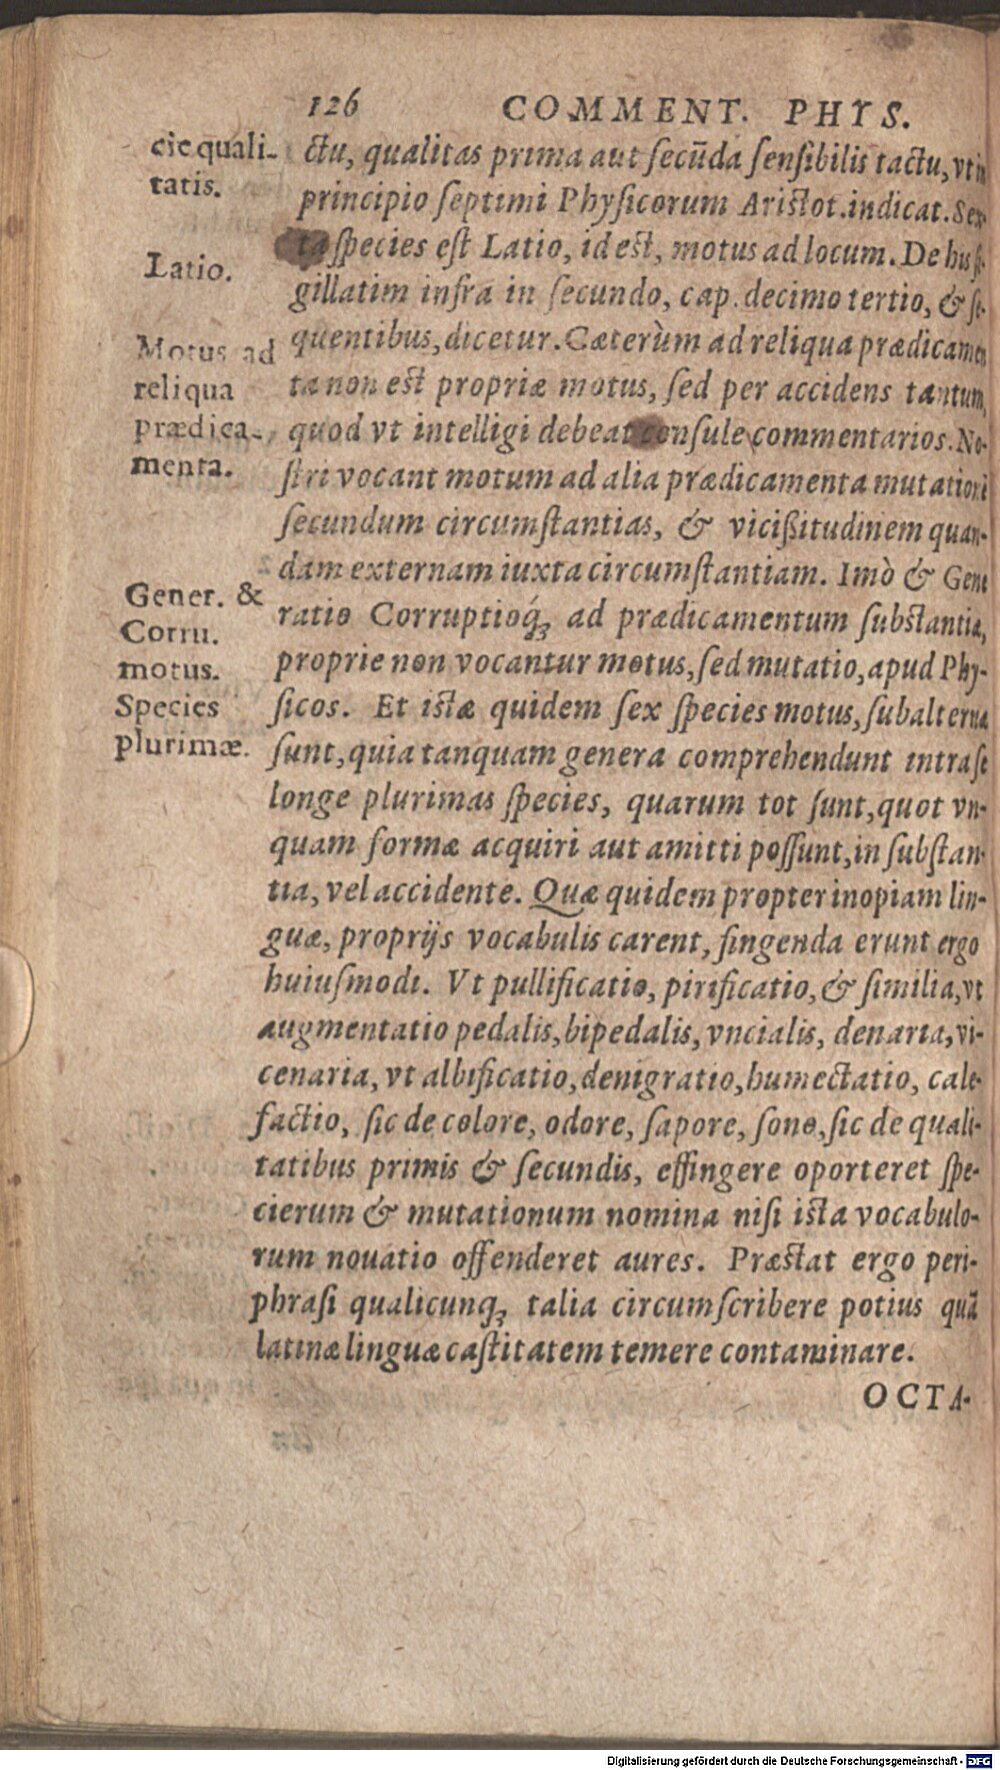 126 COMMENT. PHYS.
cie quali-
tatis.
Latio.
Motus ad
reliqua
prædica-
menta.
Gener. &
Corru.
motus.
Species
plurimæ.
ctu, qualitas prima aut secūda sensibilis tactu, vti in
principio septimi Physicorum Aristot. indicat. Sex-
ta species est Latio, id est, motus ad locum. De his si-
gillatim infra in secundo, cap. decimo tertio, & se-
quentibus, dicetur. Cæterùm ad reliqua prædicamen
ta non est propriæ motus, sed per accidens tantum,
quod vt intelligi debeat consule commentarios. No-
stri vocant motum ad alia prædicamenta mutationē
secundum circumstantias, & vicißitudinem quan-
dam externam iuxta circumstantiam. Imò & Gene
ratio Corruptioq́; ad prædicamentum substantiæ,
proprie non vocantur motus, sed mutatio, apud Phy-
sicos. Et istæ quidem sex species motus, subalternæ
sunt, quia tanquam genera comprehendunt intra se
longe plurimas species, quarum tot sunt, quot vn-
quam formæ acquiri aut amitti possunt, in substan-
tia, vel accidente. Quæ quidem propter inopiam lin-
guæ, proprijs vocabulis carent, fingenda erunt ergo
huiusmodi. Vt pullificatio, pirificatio, & similia, vt
augmentatio pedalis, bipedalis, vncialis, denaria, vi-
cenaria, vt albificatio, denigratio, humectatio, cale-
factio, sic de colore, odore, sapore, sono, sic de quali-
tatibus primis & secundis, effingere oporteret spe-
cierum & mutationum nomina nisi ista vocabulo-
rum nouatio offenderet aures. Præstat ergo peri-
phrasi qualicunq; talia circumscribere potius quā
latinæ linguæ castitatem temere contaminare.
OCTA-
Digitalisierung gefördert durch die Deutsche Forschungsgemeinschaft - DFG